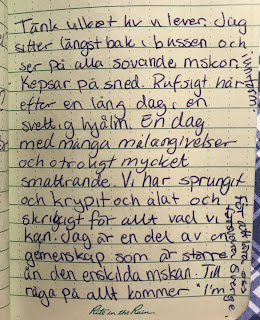 Tänk vilket liv vi lever. Jag
sitter längst bak i bussen och
ser på alla sovande mskor
i uniform.
Kepsar på sned. Rufsigt hår
efter en lång dag i en
svettig hjälm. En dag
med många målangivelser
och otroligt mycket
smattrande. Vi har sprungit
och krypit och ålat och
skrikigt för allt vad vi
kan. Jag är en del av en
gemenskap som är större
än den enskilda mskan. Till
råga på allt kommer "I'm
för att lära oss
försvara Sverige.
Rite in the Rain